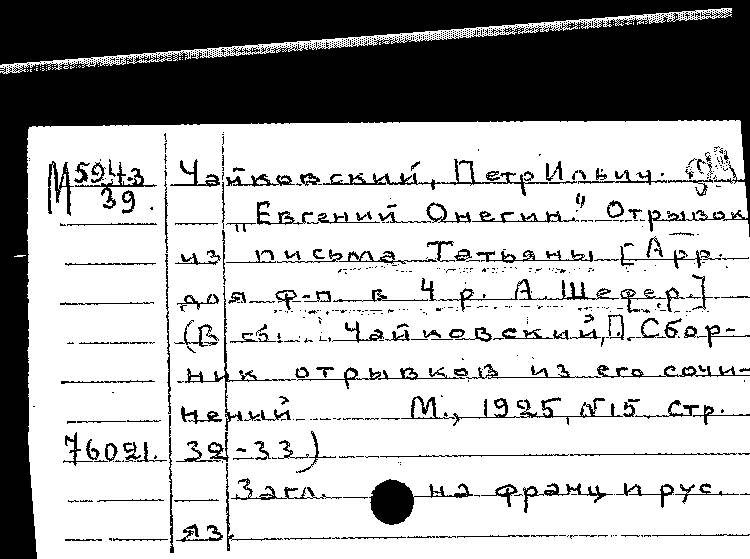 М 5943 Чайковский, Петр Ильич.
39. „Евгений Онегин." Отрывок
из письма Татьяны [Арр.
для ф-п. в 4 р. А. Шефер.]
(В сб. Чайковский, П. Сбор-
ник отрывков из его сочи-
нений М., 1925, №15, стр.
76021. 32-33.)
Загл. на франц и рус.
яз.